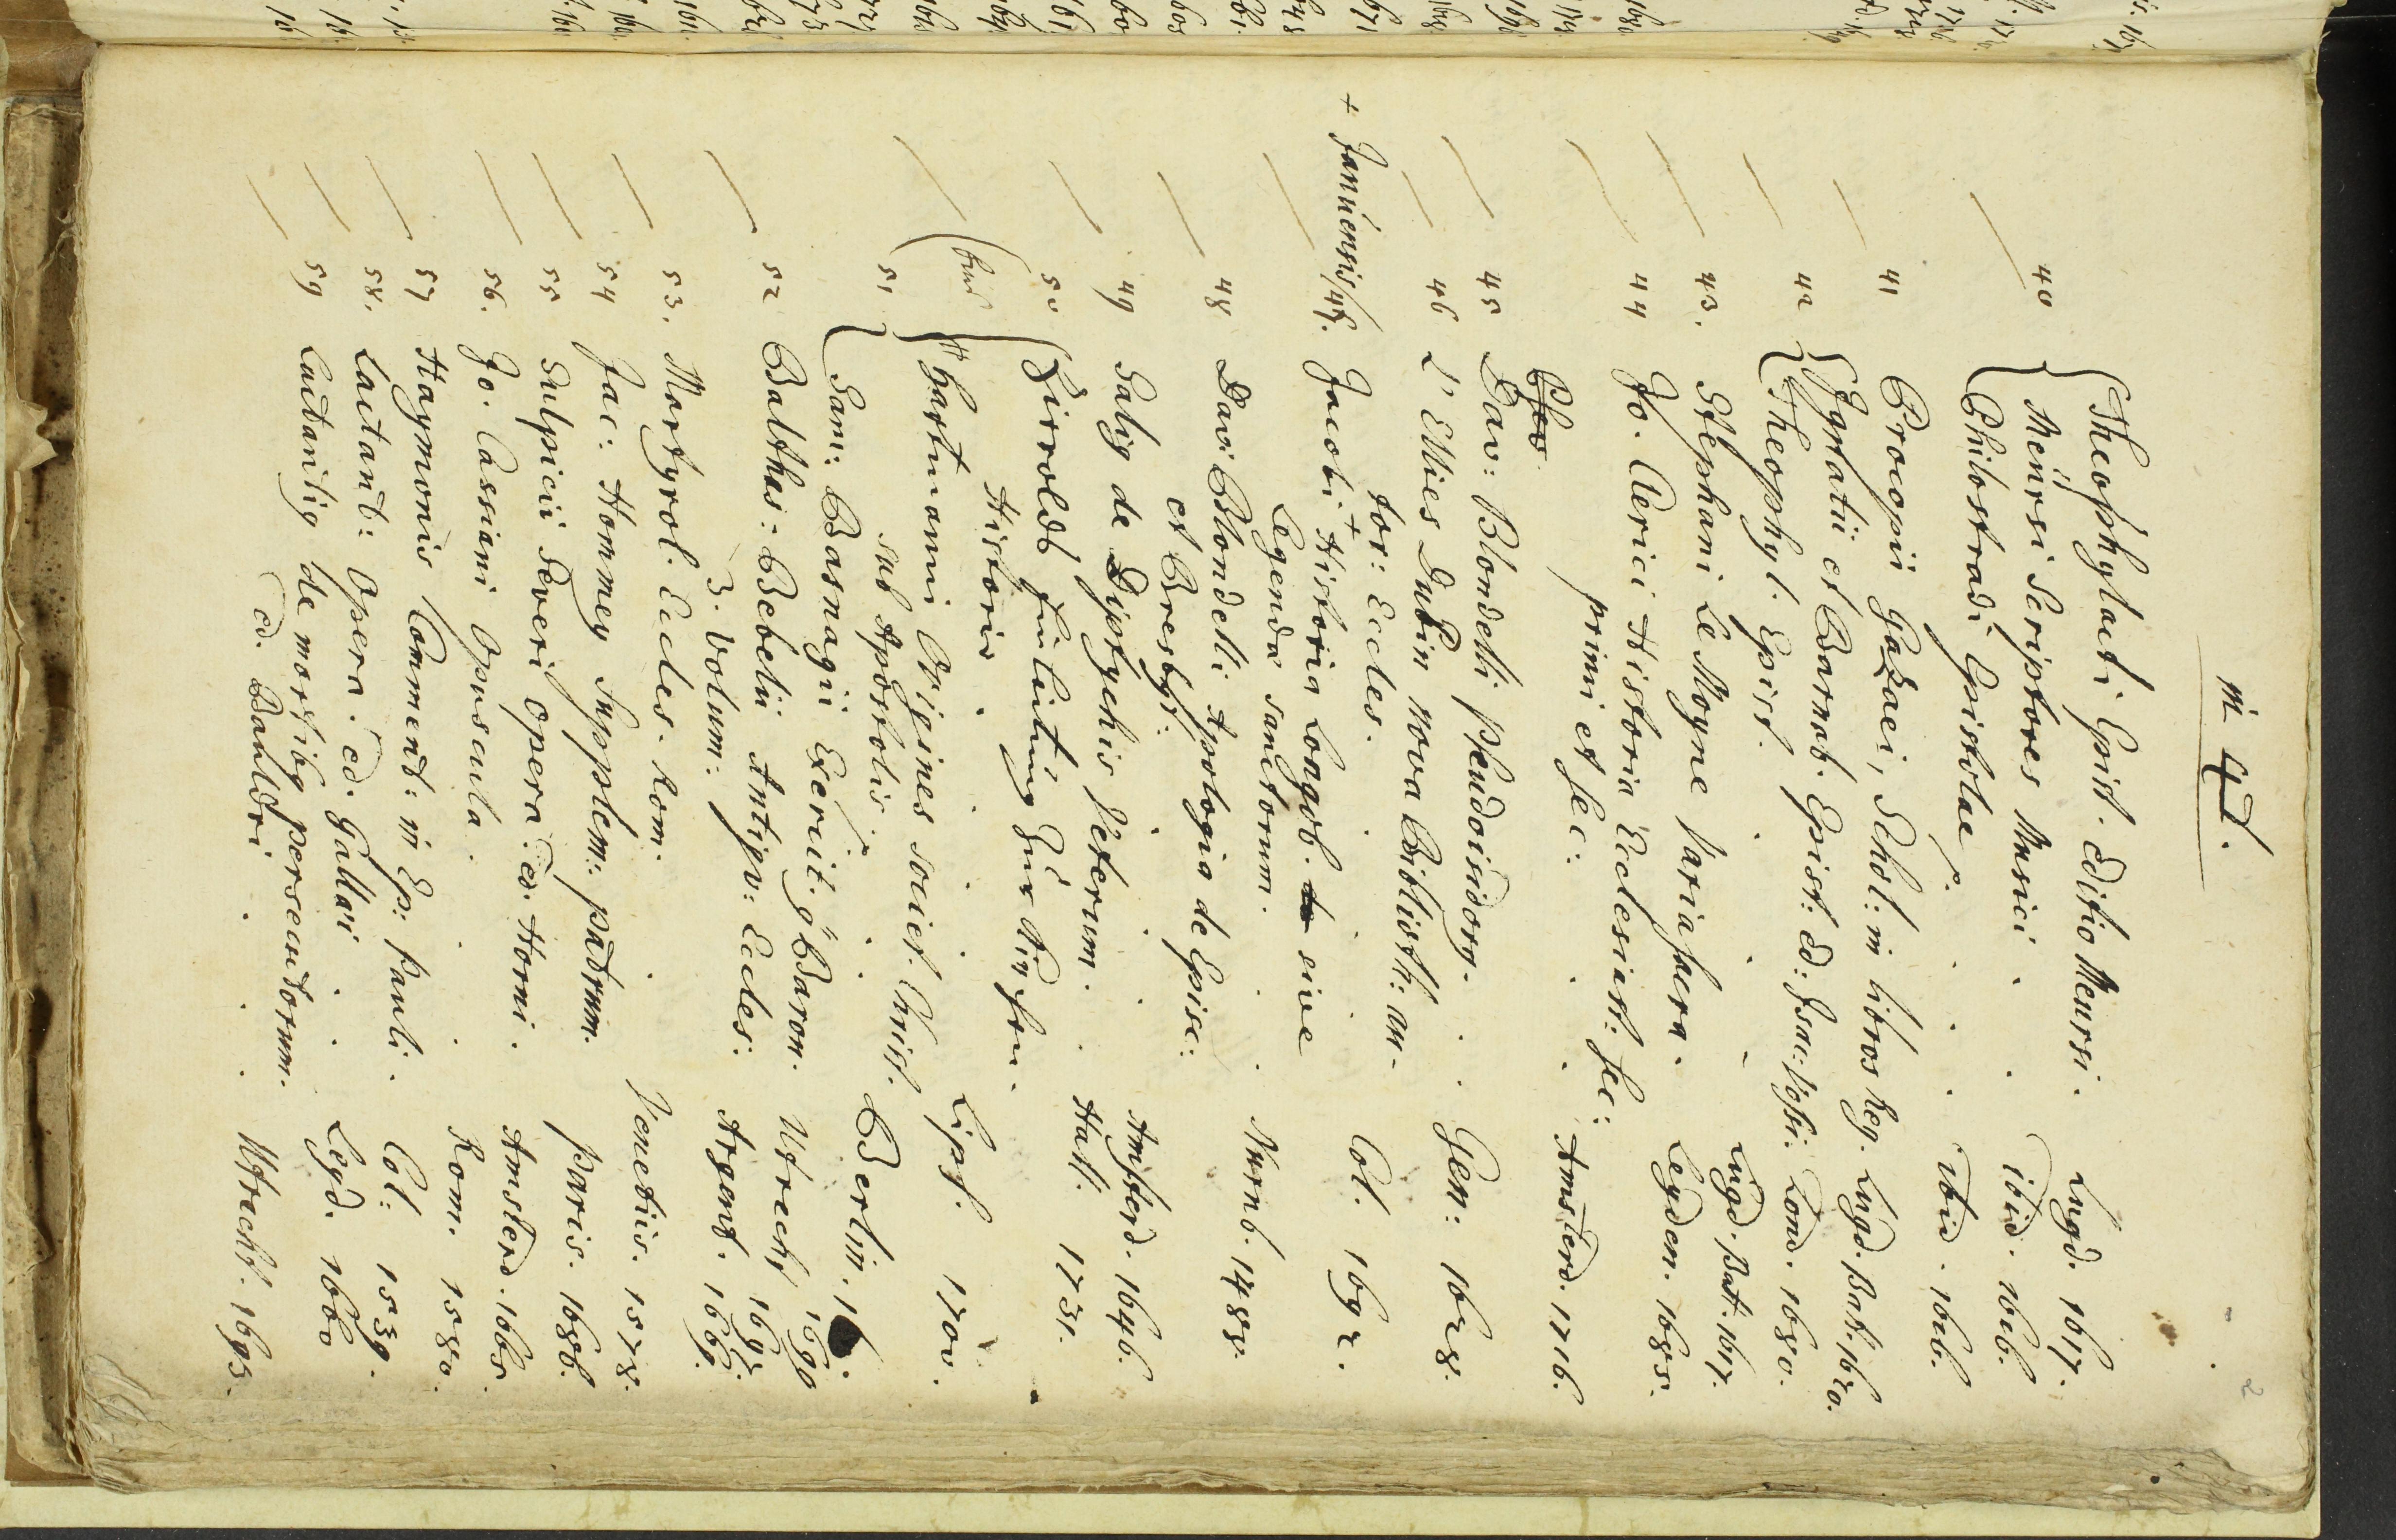 in 4t.
Theophylacti Epist. editio Meursi. Lugd. 1617.
40 Meursi Scriptores Musici . . ibid. 1616.
Philostradi Epistolae . . . ibid. 1616.
41 Procopii Gazaei, Schol: in libros Reg. Lugd. Bat. 1620.
42 Ignatii et Barnab. Epist: ed: Isac: Vossi: Lond. 1680.
Theophyl. Epist. . . Lugd. Bat. 1617.
43. Stephani Le Moyne Varia sacra. Leyden. 1685.
44 Jo. Clerici Historia Ecclesiast: sec:
primi et sec: . . Amsterd. 1716.
45 Dav: Blondelli Pseudoisidorg. . . Gen: 1628.
46 L' Ellies Dupin nova Biblioth: au-
tor: Eccles. . . Col. 1692.
+ Januensis 47. Jacobi + Historia Longob. sive
Legenda sanctorum. . . Nurnb. 1482.
48 Davi: Blondelli Apologia de Episc:
et Presbyt: . . Amsterd. 1646.
49 Salig de Diptychis Veterum. . Hall. 1731.
50 Zierolds Einleitung zur Kirchen
Historie . . Lips. 1700.
51 Hartmanni Origines societ. Christ.
sub Apostolis . . Berlin. 1
Sam: Basnagii Exercit. Baron. Utrecht 1692
52 Balthas: Bebelii Antiqv: Eccles:
3. Volum: Argent. 1669.
53. Martyrol. Eccles. Rom. . Venetiis. 1578.
54 Jac: Hommey Supplem: patrum. Paris. 1686.
55 Sulpicii Severi Opera. ed. Horni . Amsterd. 1665.
56. Jo. Cassiani Opuscula . . . Rom. 1580.
57 Haymonis Comment: in Ep: Pauli . Col: 1539.
58. Lactant: Opera. ed. Gallaei . . Legd. 1660
59 Lactantig de mortibg persecutorum.
ed. Bauldri . . . Utracht. 1693.